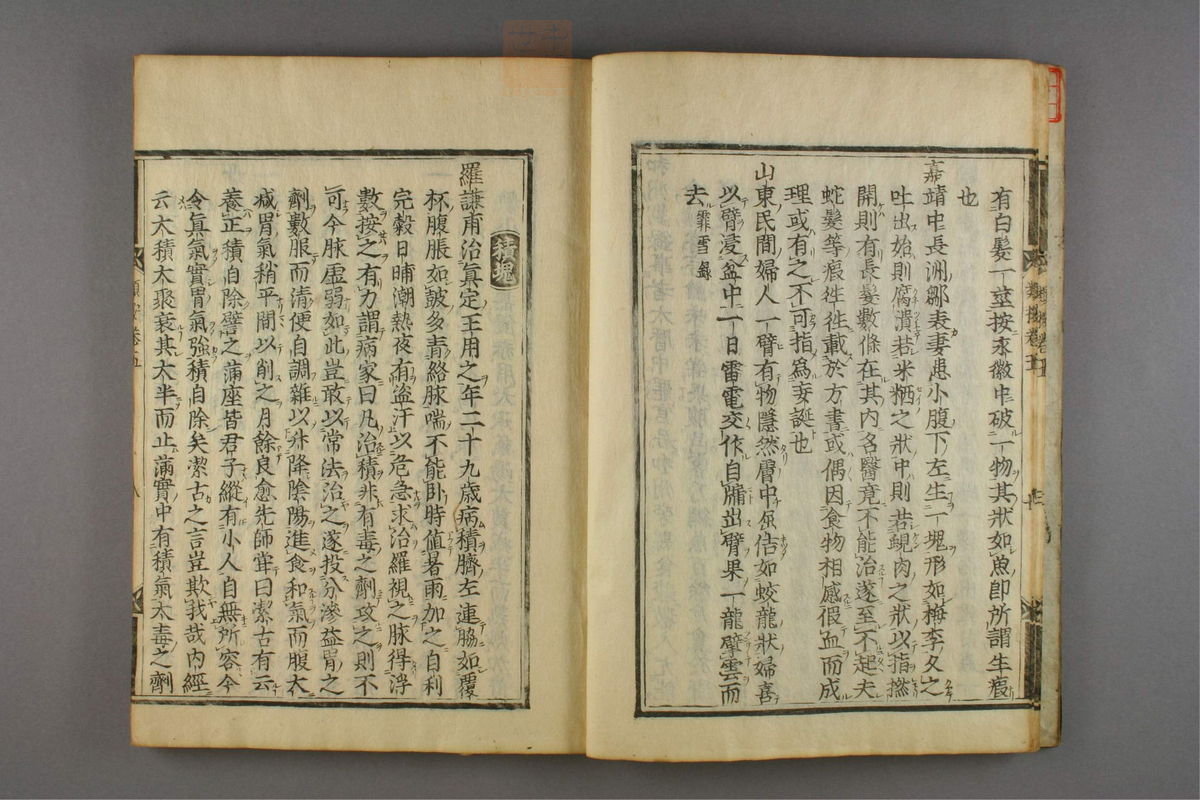 有白髮一莖按永徽中破一物其狀如魚卽所謂生瘕
也
嘉靖中長洲鄒表妻患小腹下左生一塊形如梅李久之
吐出始則腐潰若米粞之狀中則若蜆肉之狀以指撚
開則有長髮數條在其內名醫竟不能治遂至不起夫
蛇髮等瘕徃徃載於方書或偶因食物相感假血而成
理或有之不可指為妄誕也
山東民間婦人一臂有物隱然膚中屈佶如蛟龍狀婦喜
以臂浸盆中一日雷電交作自牖出臂果一龍擘雲而
去霏雪錄
積塊
羅謙甫治真定王用之年二十九歲病積臍左連脇如覆
杯腹脹如皷多青絡脉喘不能臥時值暑雨加之自利
完穀日晡潮熱夜有盜汗以危急求治羅視之脉得浮
數按之有力謂病家曰凡治積非有毒之劑攻之則不
可今脉虛弱如此豈敢以常法治之遂投分滲益胃之
劑數服而清便自調雜以升降陰陽進食和氣而腹大
減胃氣稍平間以削之月餘良愈先師甞曰潔古有云
養正積自除譬之滿座皆君子縱有小人自無所容今
令真氣實胃氣強積自除矣潔古之言豈欺我哉內經
云大積大聚衰其太半而止滿實中有積氣大毒之劑